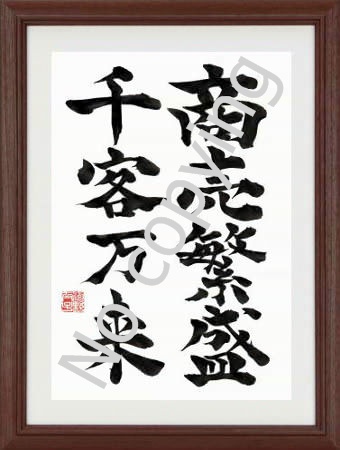 商売繁盛
千客万来
No copying